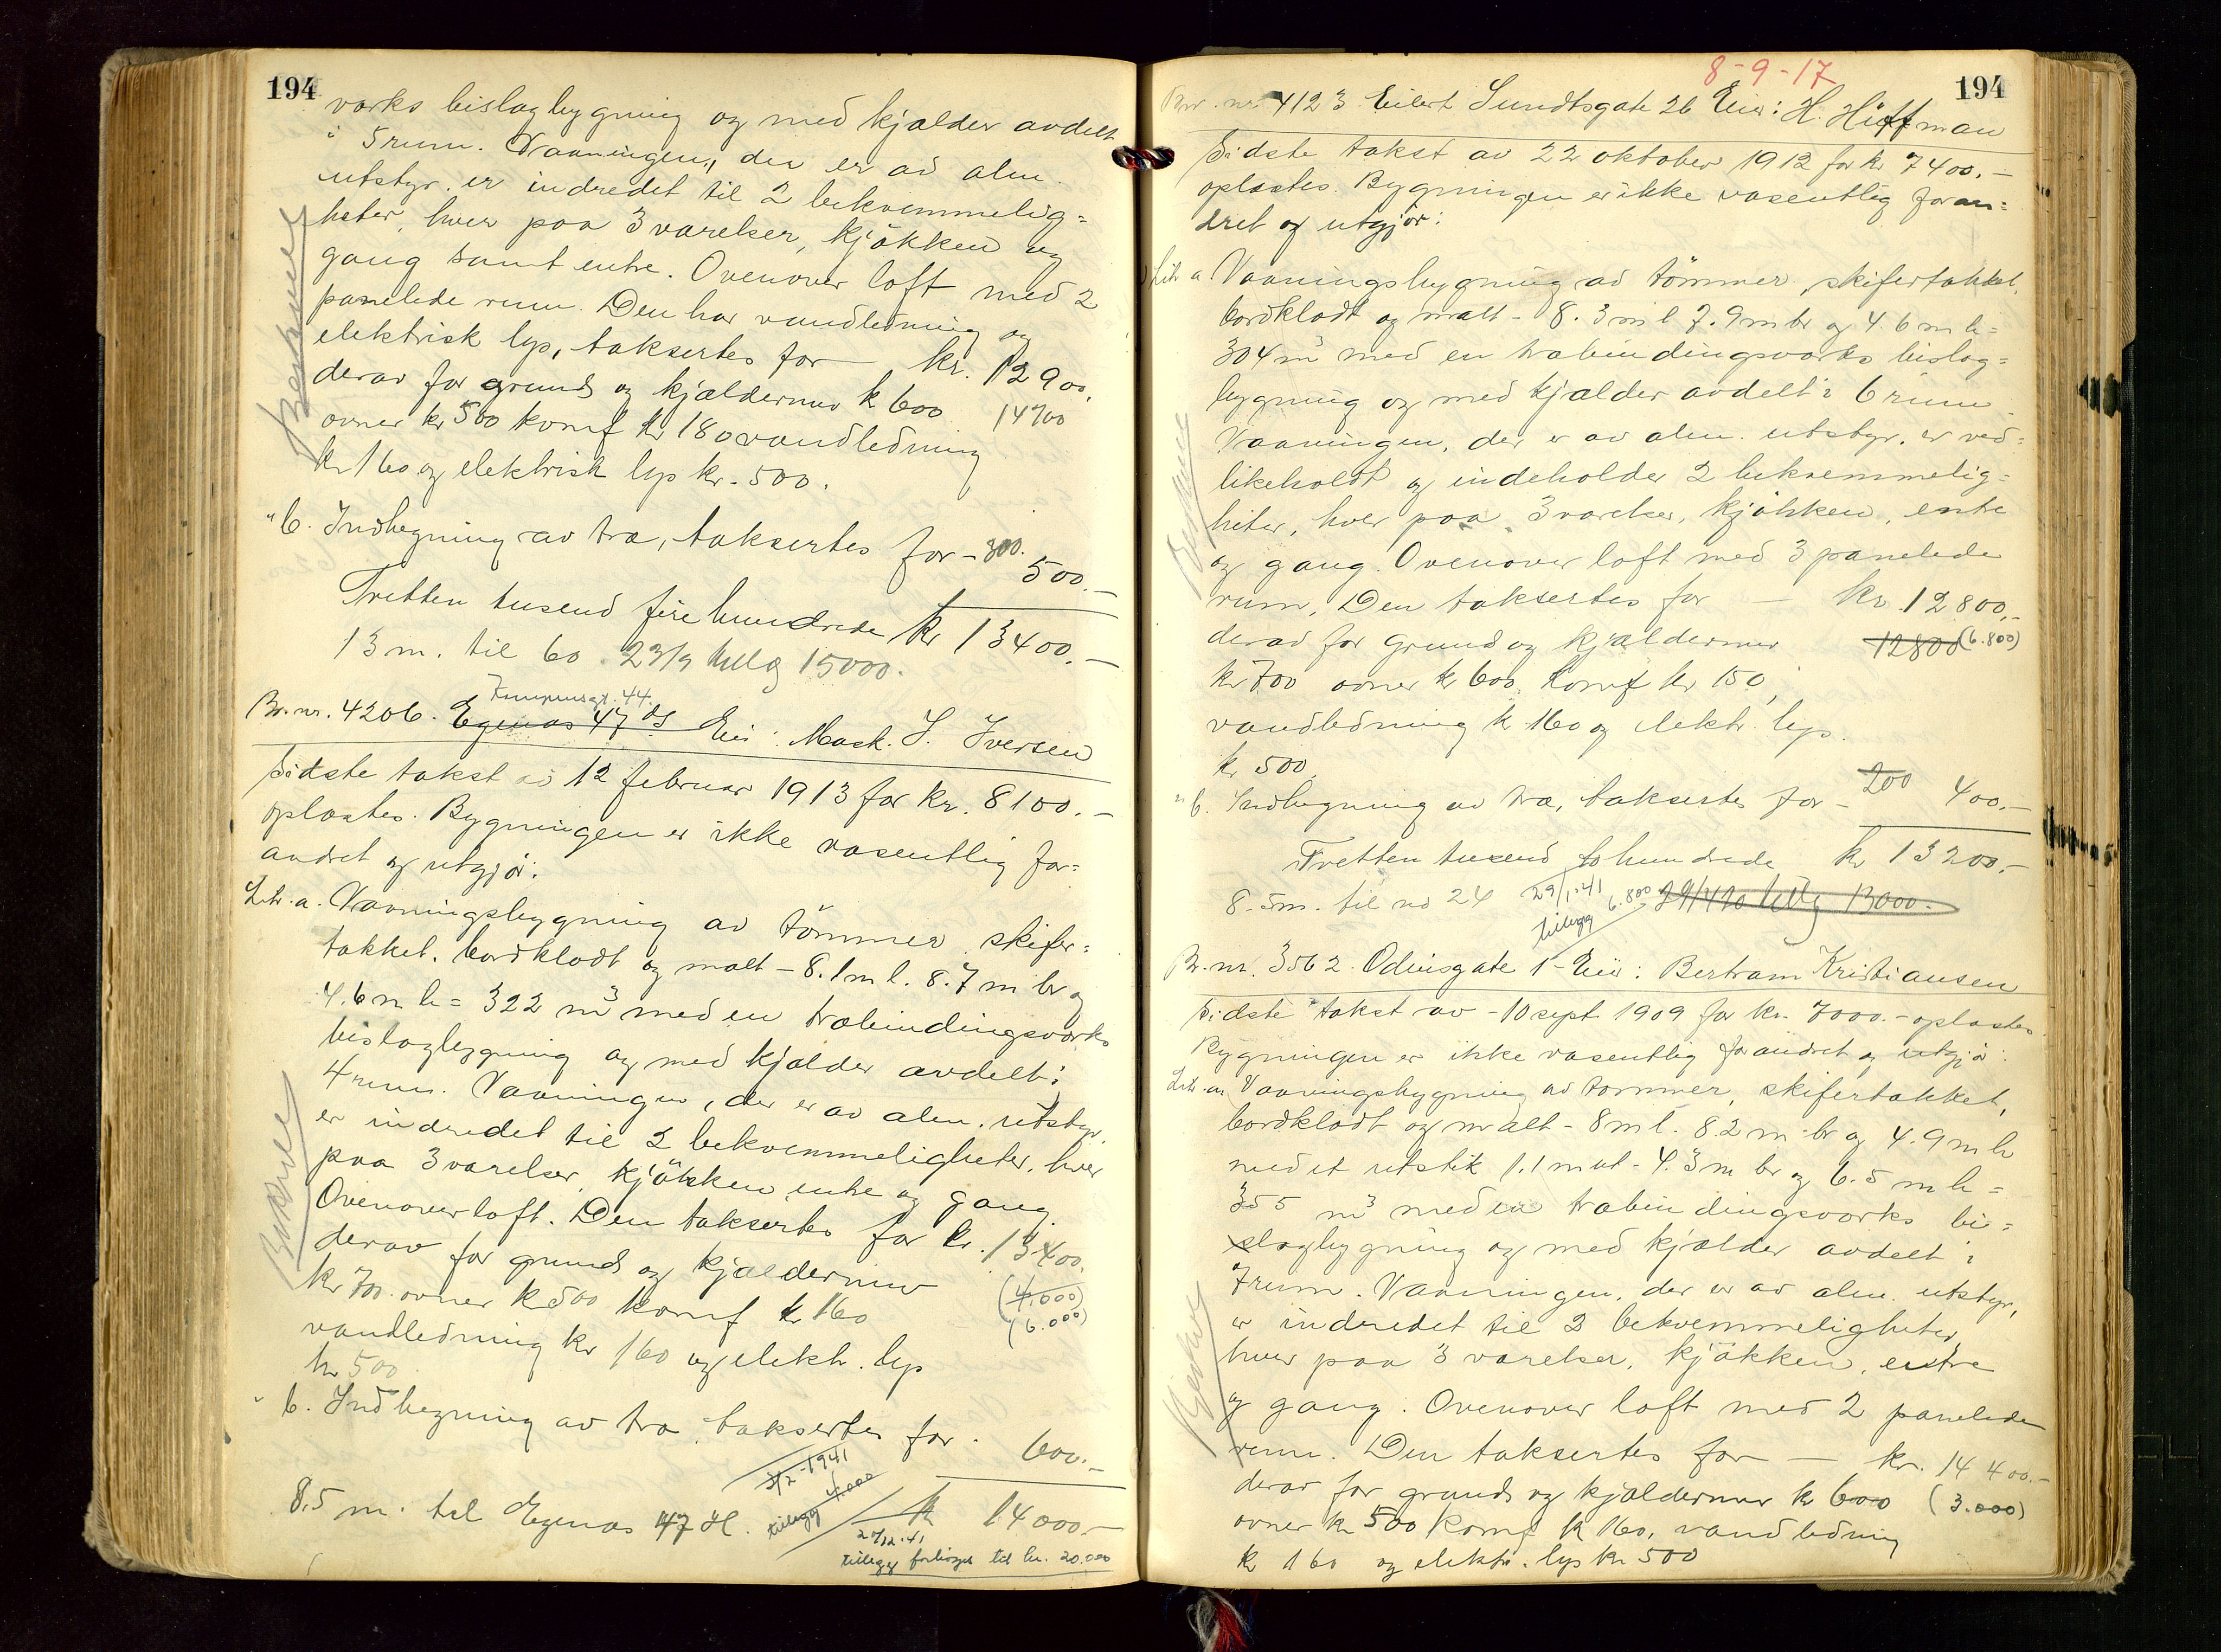 194
værks bislagbygning og med kjælder avdelt
i 5 rum. Vaaningen, der er av alm.
utstyr, er indredet til 2 bekvemmelig=
heter, hver paa 3 værelser, kjøkken og
gang samt entre. Ovenover loft med 2
panelede rum. Den har vandledning og
elektrisk lys, taksertes for — kr. 12900,
derav for grund og kjældermur kr 600
14700
ovner kr 500 komf kr 180 vandledning
kr 160 og elektrisk lys kr. 500.
" b. Indhegning av træ, taksertes for - 300. 500.—
Tretten tusend fire hundrede kr 13400.—
13 m. til 60. 23/9 tillæg 15000.
Kampensgt. 44.
Br. nr. 4206. Egenæs 47 Eier: Mask. S. Iversen
Sidste takst av 12 februar 1913 for kr. 8100.—
oplæstes. Bygningen er ikke væsentlig for=
andret og utgjør:
Litr. a. Vaaningsbygning av tömmer, skifer=
tækket, bordklædt og malt - 8.1 m l. 8.7 m br og
4.6 m h = 322 m³ med en træbindingsværks
bislagbygning og med kjælder avdelt i
4 rum. Vaaningen, der er av alm. utstyr,
er indredet til 2 bekvemmeligheter, hver
paa 3 værelser, kjökken, entre og gang.
Ovenover loft. Den taksertes for kr. 13400.
derav for grund og kjældermur
(4.000)
kr 700. ovner kr 500 komf kr 160
(6.000)
vandledning kr 160 og elektr. lys
kr 500
" b. Indhegning av træ, taksertes for - 600.—
3/2-1941
tillegg 4.000
8.5 m. til Egenæs 47 H. kr 14000.—
20/12.41
tillegg forhöyet til kr. 20.000
8-9-17
194
Br. nr. 4123 Eilert Sundtsgate 26 Eier: H. Hüffman
Sidste takst av 22 oktober 1912 for kr 7400.—
oplæstes. Bygningen er ikke væsentlig foran=
dret og utgjör:
Litr a. Vaaningsbygning av tömmer, skifertækket,
bordklædt og malt - 8.3 m l 7.9 m br og 4.6 m h =
304 m³ med en træbindingsværks bislag=
bygning og med kjælder avdelt i 6 rum
Vaaningen, der er av alm. utstyr, er ved=
likeholdt og indeholder 2 bekvemmelig=
heter, hver paa 3 værelser, kjökken, entre
og gang. Ovenover loft med 3 panelede
rum. Den taksertes for — kr. 12800.—
derav for grund og kjældermur 12800 (6.800)
kr 700 ovner kr 600, komf kr 150,
vandledning kr 160 og elektr. lys
kr 500.
" b. Indhegning av træ, taksertes for - 200 400.—
Tretten tusend to hundrede kr 13200.—
8.5 m. til no 24 29/1-41 tillegg 6.800 29/4 20 tillæg 13000.
Br. nr. 3562. Odinsgate 1 - Eier: Bertram Kristiansen
Sidste takst av - 10 sept 1909 for kr. 7000.- oplæstes.
Bygningen er ikke væsentlig forandret og utgjör:
Litr. a. Vaaningsbygning av tömmer, skifertækket,
bordklædt og malt - 8 m l. 8.2 m br og 4.9 m h
med et utstik 1.1 m ut - 4.3 m br og 6.5 m h =
355 m³ med en træbindingsværks bi=
slagbygning og med kjælder avdelt i
7 rum. Vaaningen, der er av alm. utstyr,
er indredet til 2 bekvemmeligheter,
hver paa 3 værelser, kjökken, entre
og gang. Ovenover loft med 2 panelede
rum. Den taksertes for — kr. 14400.—
derav for grund og kjældermur kr 600 (3.000)
ovner kr 500 komf kr 160, vandledning
kr 160 og elektr. lys kr 500